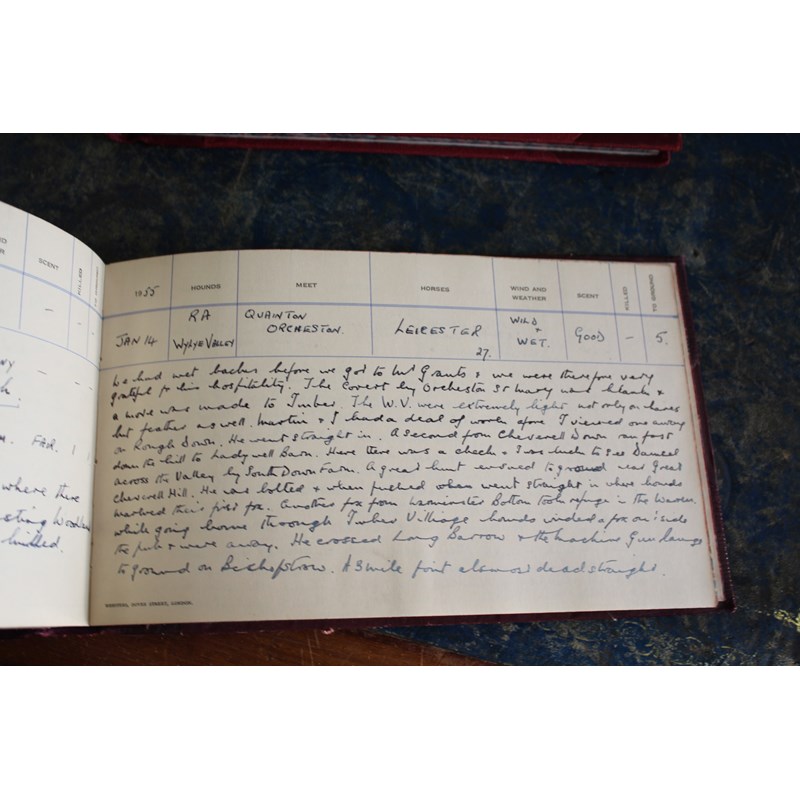 SCENT
KILLED
1955
HOUNDS
MEET
HORSES
WIND AND WEATHER
SCENT
KILLED
TO GROUND
JAN 14
RA
WYLYE VALLEY
QUAINTON
ORCHESTON.
LEICESTER
27.
WILD
+
WET.
GOOD
-
5.
We had wet backs before we got to Grants & we were therefore very
grateful for his hospitality. The Covert by Orcheston St Mary was blank &
a move was made to Imber. The W.V. were extremely light not only on hares
but feather as well. Martin & I had a deal of work afore I viewed one away
on Rough Down. He went straight in. A second from Cheverell Down ran fast
down the hill to Ladywell Barn. Here there was a check & I was lucky to see Daniel
across the Valley by South Down Farm. A great hunt ensued to ground near Great
Cheverell Hill. He was bolted & when pushed went straight in where hounds
marked their first fox. Another fox from Bottom took refuge in the Warren.
While going home through Imber Village hounds winded a fox outside
the pub & were away. He crossed Long Barrow & the Machine Gun
to ground on Bishopstrow. A 3 mile point almost dead straight.
LONDON.
FED. 1
where there